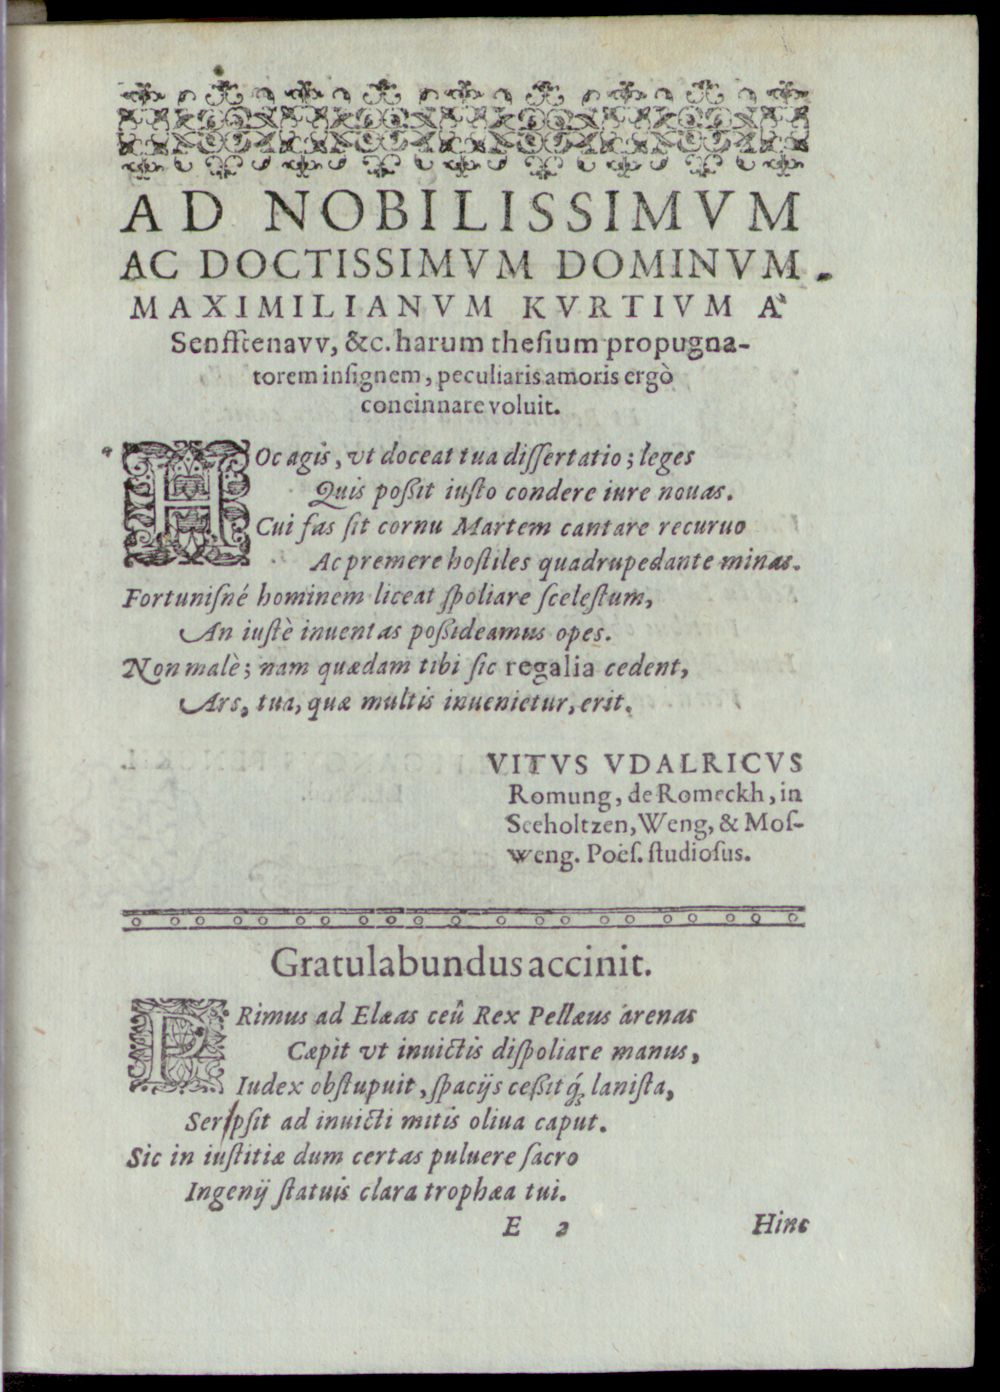 AD NOBILISSIMVM
AC DOCTISSIMVM DOMINVM
MAXIMILIANVM KVRTIVM À
Senfftenavv, &c. harum theſium propugna-
torem inſignem, peculiaris amoris ergò
concinnare voluit.
HOc agis, vt doceat tua diſſertatio; leges
Quis poßit iuſto condere iure nouas.
Cui fas ſit cornu Martem cantare recuruo
Ac premere hoſtiles quadrupedante minas.
Fortuniſné hominem liceat ſpoliare ſceleſtum,
An iuſtè inuentas poßideamus opes.
Non malè; nam quædam tibi ſic regalia cedent,
Ars, tua, quæ multis inuenietur, erit.
VITVS VDALRICVS
Romung, de Romeckh, in
Seeholtzen, Weng, & Moſ-
weng. Poëſ. ſtudioſus.
Gratulabundus accinit.
PRimus ad Elæas ceû Rex Pellæus arenas
Cæpit vt inuictis diſpoliare manus,
Iudex obſtupuit, ſpacijs ceßitq́; laniſta,
Serpſit ad inuicti mitis oliua caput.
Sic in iuſtitiæ dum certas puluere ſacro
Ingenij ſtatuis clara trophæa tui.
E 2 Hinc